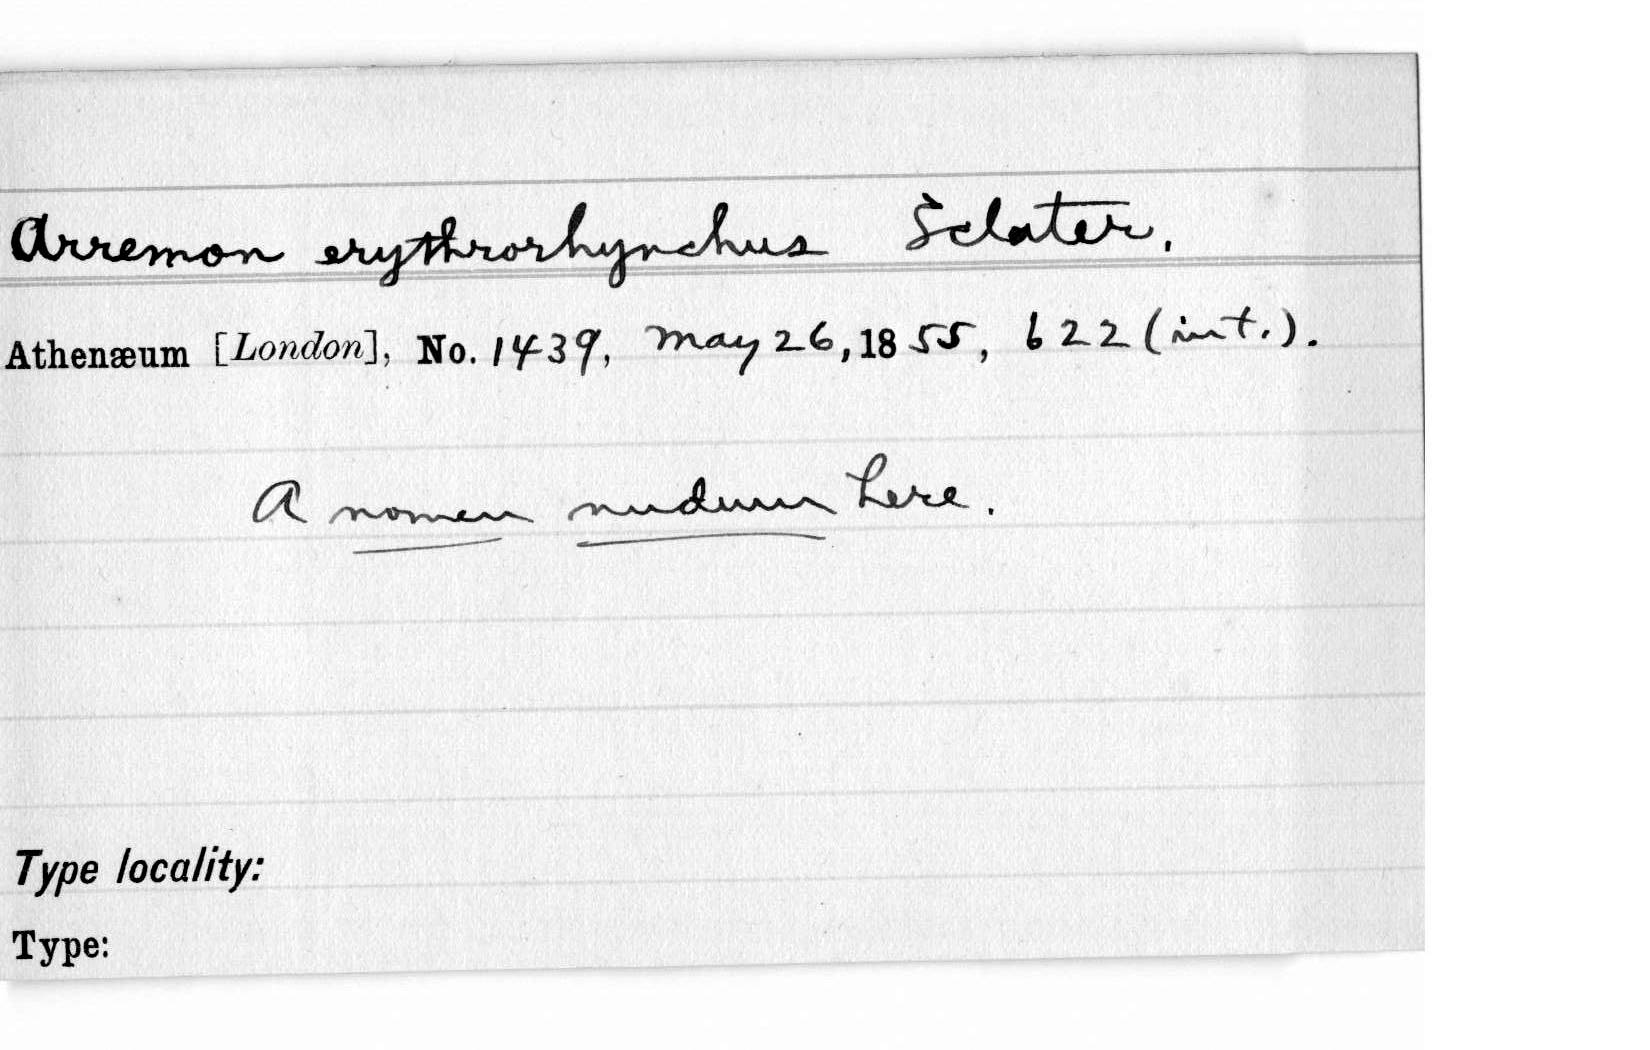 Arremon erythrorhynchus Sclater.
Athenæum [London], No. 1439, May 26, 1855, 622 (int.).
A nomen nudum here.
Type locality:
Type: